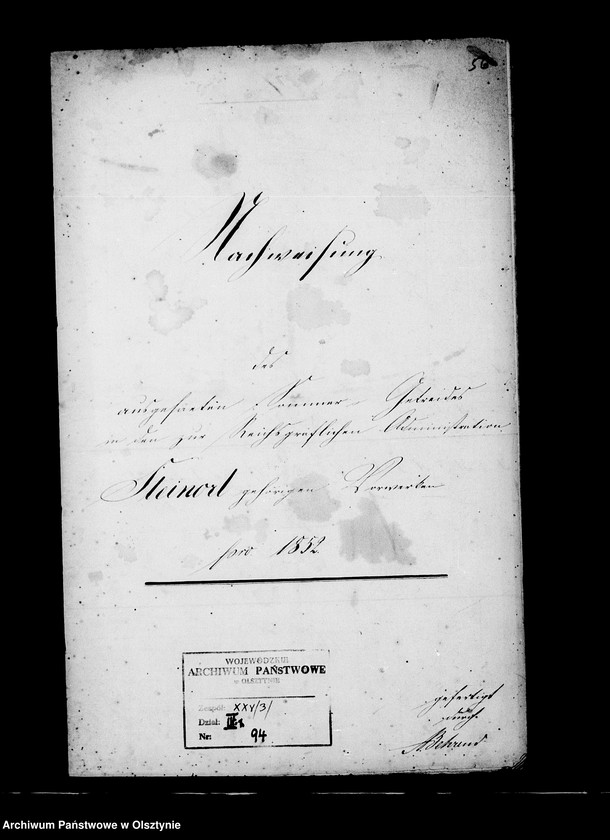 56
Nachweisung
des
ausgesaeten Sommer-Getreides
in den zur Reichsgräflichen Administration
Steinort gehörigen Vorwerken
pro 1852.
WOJEWÓDZKIE
ARCHIWUM PAŃSTWOWE
w OLSZTYNIE
Zespół: XXV/3/
Dział:
Nr: 94
gefertigt
durch
A. Behrend
Archiwum Państwowe w Olsztynie